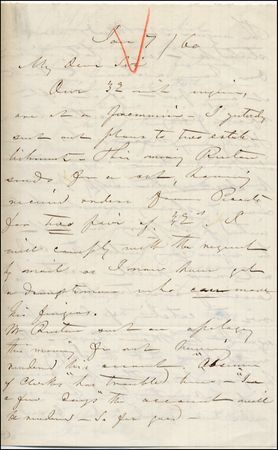 Jan 7/60
My Dear Sir
Our 32 inch engines
are at a premium - I yesterday
sent out plans to two estab-
lishments - This morning
sends for a set, having
received orders from
for two pair of 32s. I
will comply with the request
by mail as I now have got
a draughtsman who can move
his fingers.
Mr sent an apology
this morning for not having
rendered this account, "Absence
of Clerks" has troubled him - "In
a few days" the account will
be rendered - So far good -